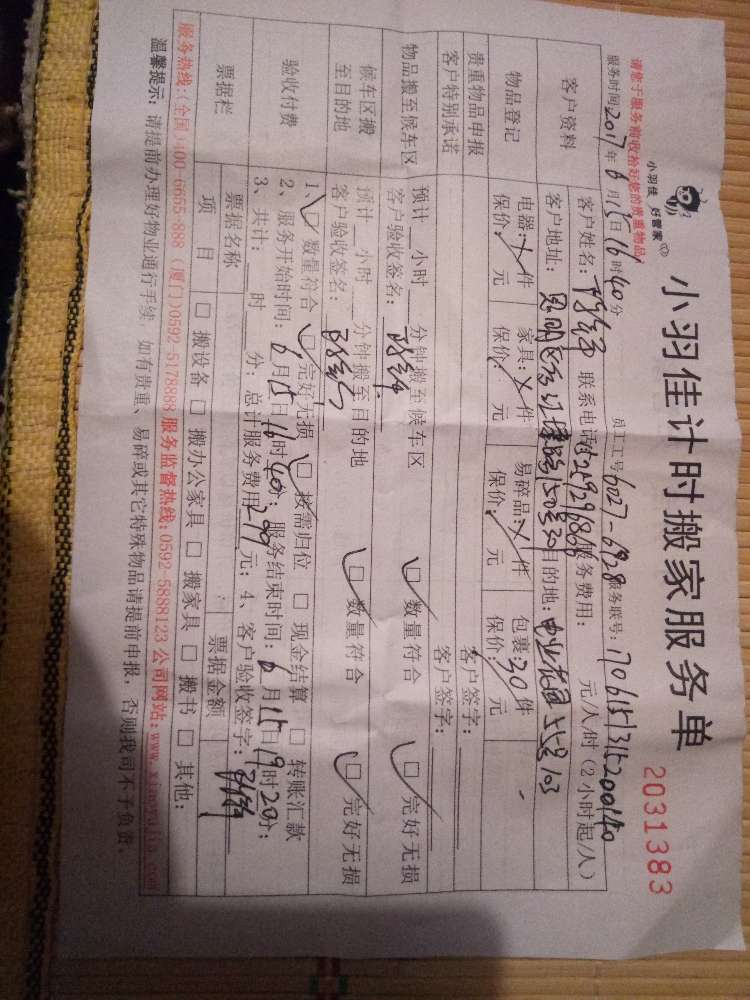 小羽佳计时搬家服务单
小羽佳 好管家
2031383
请您于服务前收拾好您的贵重物品
服务时间:2017年6月15日16时40分 员工工号:6027-6928 服务联号:
客户资料 客户姓名: 联系电话: 服务费用: 元/人/时(2小时起/人)
客户地址: 目的地:
物品登记 电器: 件 家具: 件 易碎品: 件 包裹30件
保价: 元 保价: 元 保价: 元 保价: 元
贵重物品申报 客户签字:
客户特别承诺 客户签字:
物品搬至候车区 预计 小时 分钟搬至候车区 □ 数量符合 □ 完好无损
客户验收签名:
候车区搬至目的地 预计 小时 分钟搬至目的地 □ 数量符合 □ 完好无损
客户验收签名:
验收付费 1、□ 数量符合 □ 完好无损 □ 按需归位 □ 现金结算 □ 转账汇款
2、服务开始时间: 6月15日16时40分; 服务结束时间: 6月15日19时20分;
3、共计: 时 分; 总计服务费用 元; 4、客户验收签字:
票据栏 票据名称 票据金额
项目 □ 搬设备 □ 搬办公家具 □ 搬家具 □ 搬书 □ 其他:
服务热线:(全国)400-6665-888 (厦门)0592-5178888 服务监督热线:0592-5888123 公司网站:www.xiaoyujia.com
温馨提示: 请提前办理好物业通行手续,如有贵重、易碎或其它特殊物品请提前申报,否则我司不予负责。